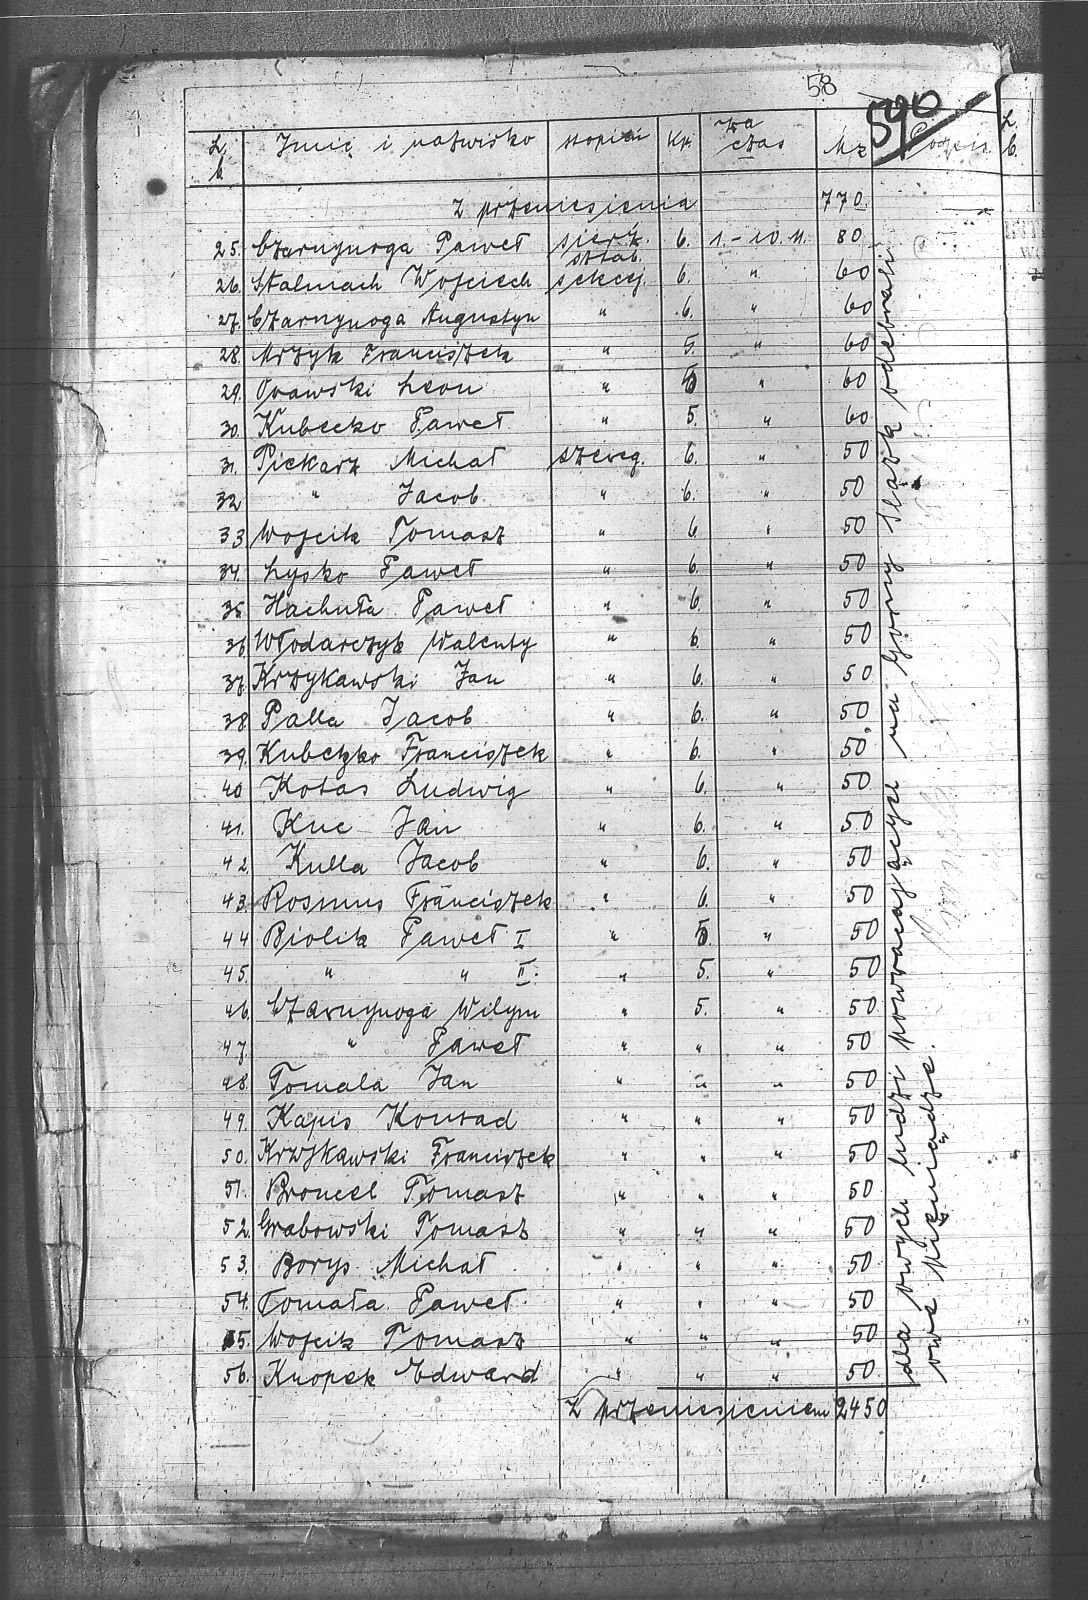 58
590
L.b. Imię i nazwisko stopień Kp. za czas Mz Podpis L.b.
Z przeniesienia 770
25. Czarnynoga Paweł sierż. sztab. 6. 1.-10.11. 80
26. Stalmach Wojciech sekcij. 6. " 60
27. Czarnynoga Augustyn " 6. " 60
28. Mrzyk Franciszek " 5. " 60
29. Orawski Leon " 5 " 60
30. Kubecko Paweł " 5. " 60
31. Piekarz Michał szereg. 6. " 50
32 " Jacob " 6. " 50
33 Wojcik Tomasz " 6 " 50
34. Lysko Paweł " 6. " 50
35 Hachuła Paweł " 6. " 50
36 Włodarczyk Walenty " 6. " 50
37. Krzykawski Jan " 6. " 50
38 Palla Jacob " 6. " 50
39. Kubetzko Franciszek " 6. " 50
40 Kotas Ludwig " 6. " 50
41. Kuc Jan " 6. " 50
42 Kulla Jacob " 6. " 50
43 Rosmus Franciszek " 6. " 50
44 Biolik Paweł I " 5 " 50
45. " " II. " 5. " 50
46. Czarnynoga Wilym " 5. " 50
47 " Paweł " " " 50
48. Tomala Jan " " " 50
49. Kapis Konrad " " " 50
50. Krzykawski Franciszek " " " 50
51. Broncel Tomasz " " " 50
52. Grabowski Tomasz " " " 50
53. Borys Michał " " " 50
54. Tomała Paweł " " " 50
55. Wojcik Tomasz " " " 50
56. Knopek Edward " " " 50
Z przeniesieniem 2450
dla owych ludzi powracających na Górny Śląsk odebrali
owe pieniądze.